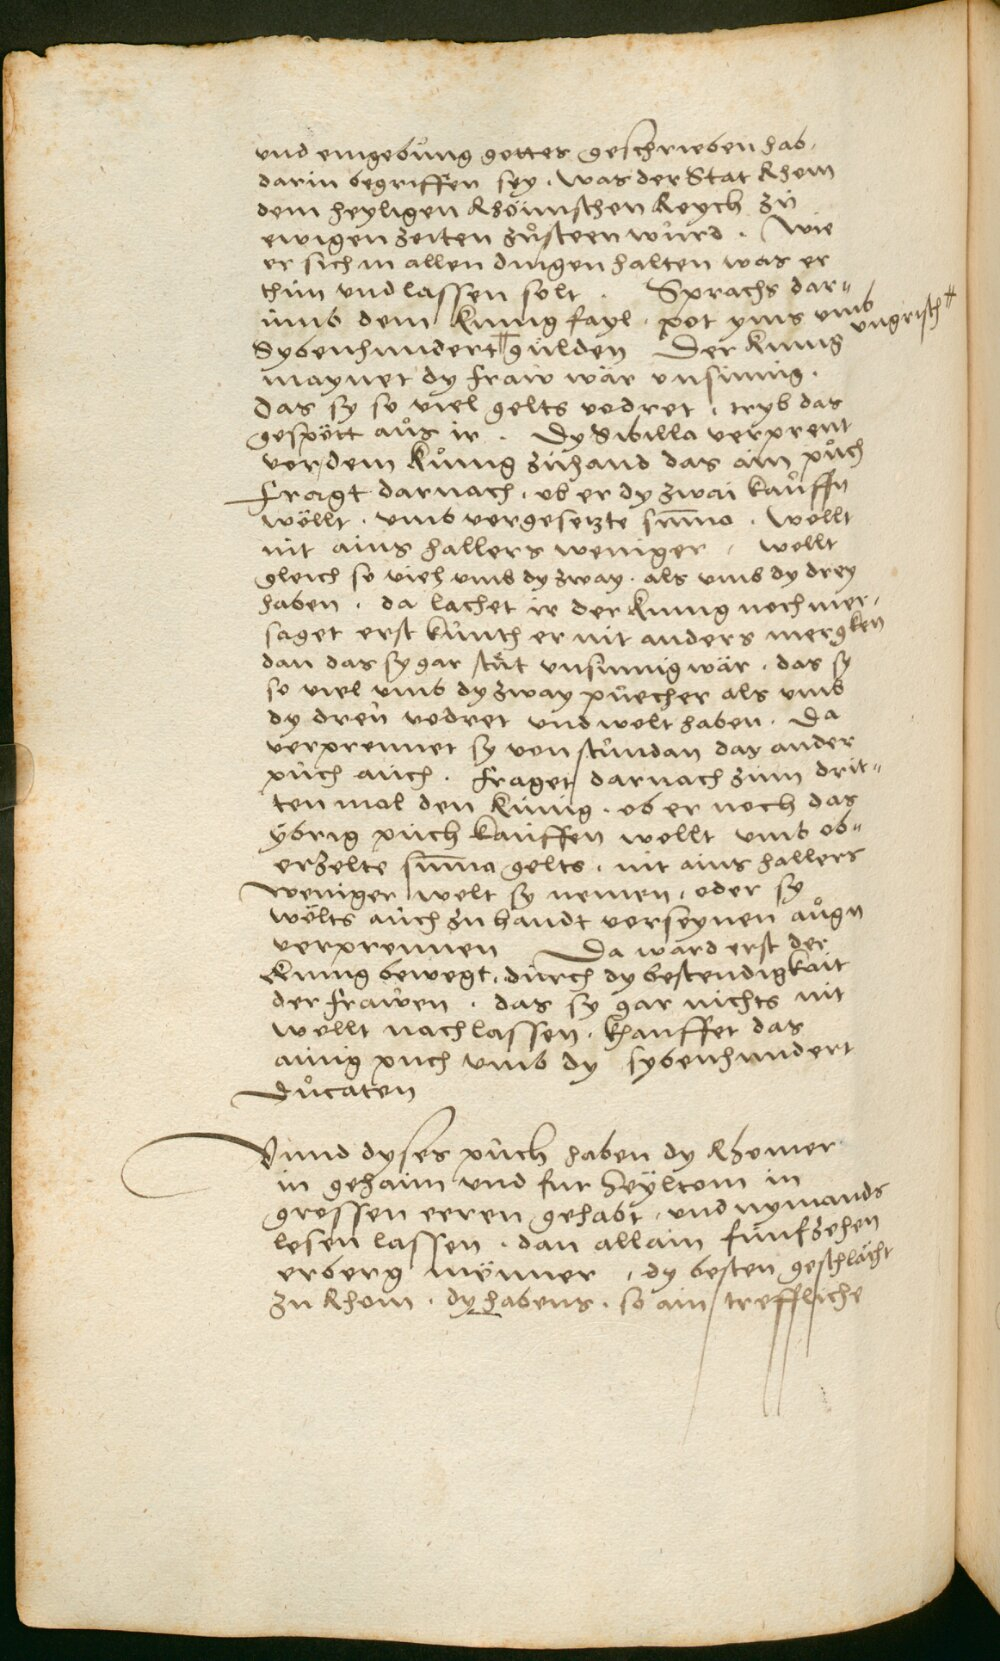 vnd eingebůng gottes geschrieben hab,
darin begriffen sey. was der Stat Rhom
dem heyligen Rhömischen Reych zů
ewigen zeiten zůsteen wůrd. Wie
er sich in allen dingen halten was er
thun vnd lassen solt. Sprachs dar„
ůmb dem kunig fayl. pot yms vmb
Sybenhundert # gůlden Der kunig
vngrisch #
maynet dy fraw wär vnsinnig.
das sy so viel gelts vodret, tryb das
gespött aůs ir. Dy Sibilla verprent
vor dem Kůnig zůhand das ain půch
fragt darnach, ob er dy zwai kaůffn
wöllt. vmb vorgesetzte suma. Wollt
nit ains hallers weniger, wollt
gleich so vieh vmb dy zway. als vmb dy drey
haben. da lachet ir der kunig noch mer,
saget erst kůnth er nit anders mergken
dan das sy gar stät vnsinnig wär. das sy
so viel vmb dy zway půecher als vmb
dy dreü vodret vnd wolt haben. Da
verprennet sy von stůndan das ander
půch aůch. fraget darnach zům drit„
ten mol den Kůnig. ob er noch das
ÿbrig půch kaůffen wollt vmb ob„
erzelte suma gelts, nit ains hallers
weniger wolt sy nemen, oder sy
wölts aůch zu handt vor seynen aůgn
verprennen Da ward erst der
kunig bewegt. důrch dy bestendigkait
der frawen. das sy gar nichts nit
wollt nachlassen. khauffet das
ainig puch vmb dy sybenhundert
Důcaten
Vnnd dyses půch haben dy Rhomer
in gehaim vnd fur heyltom in
grossen eeren gehabt. vnd nymands
lesen lassen. dan allain fůnfzehen
erberg männer, dy besten geschlächt
zu Rhom. dy habens. so ain treffliche